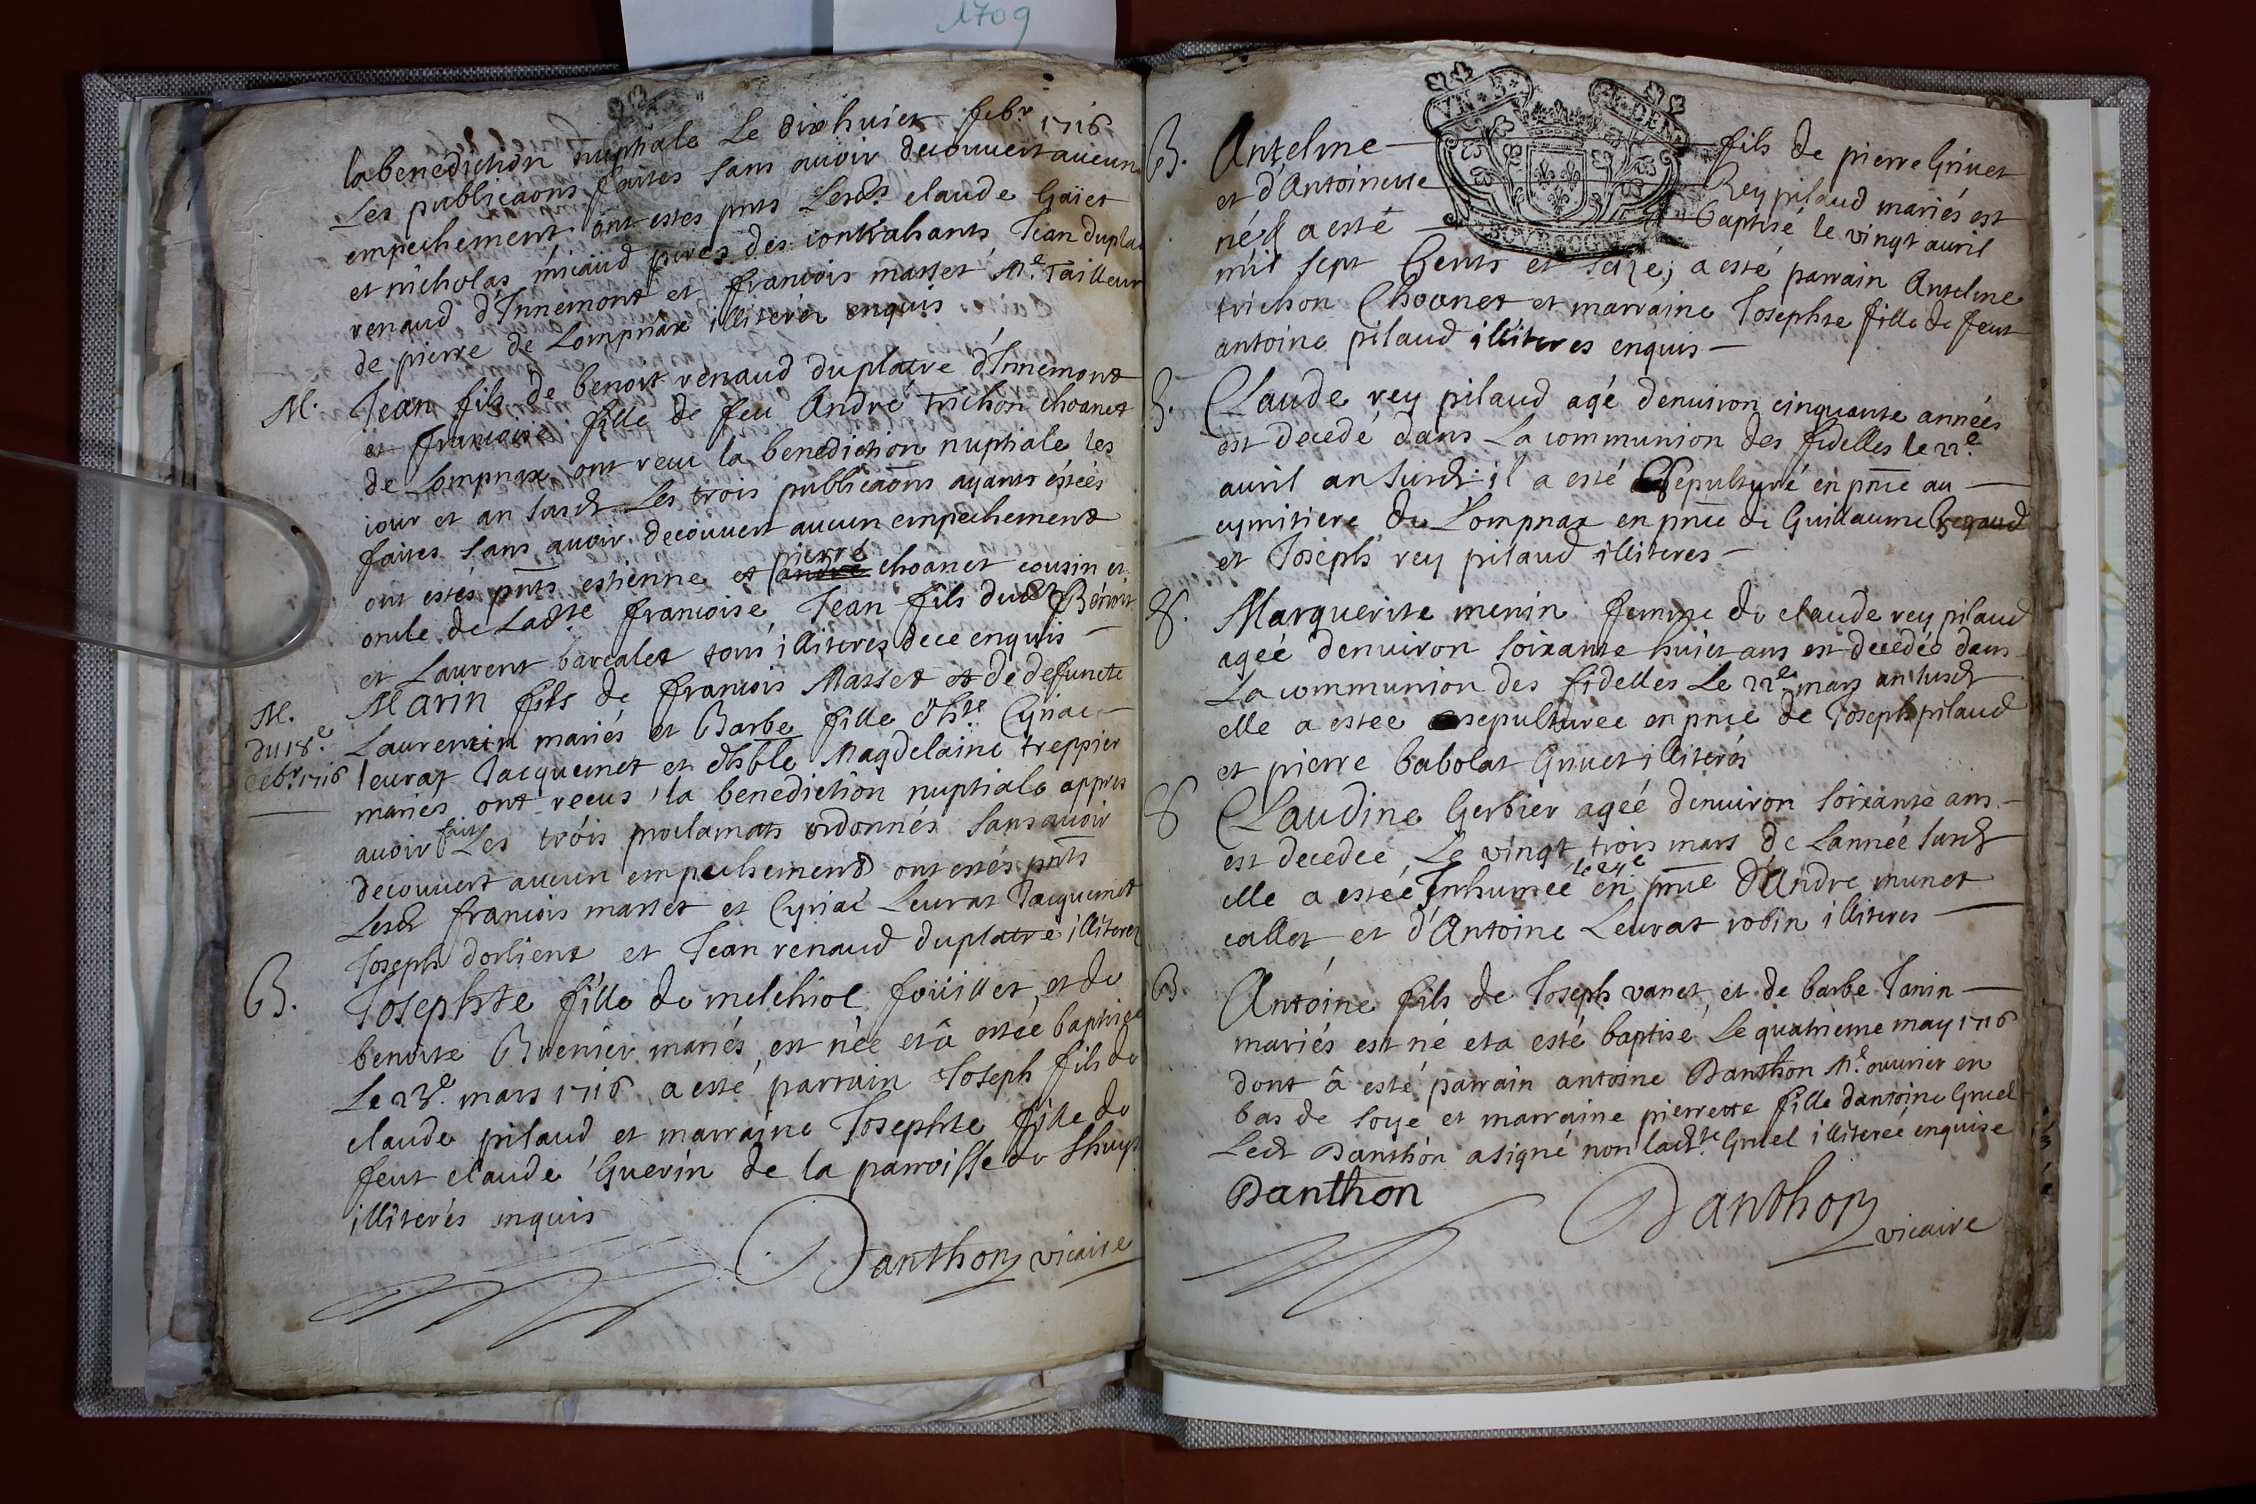 1709
la benediction nuptiale Le dixhuict febr 1716
Les publicaons faites sans avoir decouvert aucun
empechement ont estes pnts Lesds claude Gaiet
et nicholas micaud peres des contrahants Jean dupla
renaud d'Innemont et francois masset Me Tailleur
de pierre de Lompnax illiterés enquis
M. Jean fils de benoit renaud duplatre d'Innemont
et francoise fille de feu André trichon choanet
de Lompnax ont receu la benediction nuptiale les
iour et an susd Les trois publicaons ayants estées
faites sans avoir decouvert aucun empechement
pierre
ont estés pnts estienne et andré choanet cousin et
oncle de Ladte francoise, Jean fils dud Benoit
et Laurent barcalet tous illiteres dece enquis
M. Marin fils de francois Masset et de defuncte
du 18e Laurentin mariés et Barbe fille d'hte Cyriac
febr 1716 leurat Jacquemet et d'hble Magdelaine treppier
mariés ont receus la benediction nuptiale appres
avoir fait Les trois proclamats ordonnés sans avoir
decouvert aucun empechement ont estés pnts
Lesd francois masset et Cyriac Leurat Jacquemet
Joseph dorlient et Jean renaud duplatre illiterés
B. Josephte fille de melchiol foüillet et de
benoite Brenier mariés, est née et a estée baptisée
Le 23e mars 1716 a esté parrain Joseph fils de
claude pilaud et marraine Josephte fille de
feut claude Guerin de la parroisse de
illiterés enquis
Danthon vicaire
VN S DEN
BOVRGOGNE
B. Antelme fils de pierre Grivet
et d'Antoinette Rey pilaud mariés est
né et a esté Baptisé le vingt avril
mil sept Cents et seize; a esté parrain Antelme
trichon Choanet et marraine Josephte fille de feut
antoine pilaud illiteres enquis
S. Claude rey pilaud agé denviron cinquante années
est decedé dans La communion des fidelles le 22e
avril an susd il a esté sepulturé en pnce au
cymitiere de Lompnax en pnce de Guillaume
et Joseph rey pilaud illiteres
S. Marguerite menin femme de claude rey pilaud
agée denviron soixante huict ans est decedée dans
La communion des fidelles Le 22e mars an susd
elle a estee sepulturee en pnce de Joseph pilaud
et pierre babolat Grivet illiterés
S Claudine Gerbier agée denviron soixante ans
est decedee Le vingt trois mars de Lannée susd
le 24e
elle a estée Inhumée en pnce d'Andre munet
callet et d'Antoine Leurat robin illiteres
B. Antoine fils de Joseph vanet et de barbe Janin
mariés est né et a esté baptisé Le quatrieme may 1716
dont a esté parrain antoine Danthon Me ouvrier en
bas de soye et marraine pierrette fille dantoine Gruel
Led Danthon a signé non ladte Gruel illiterée enquise
Danthon Danthon
vicaire